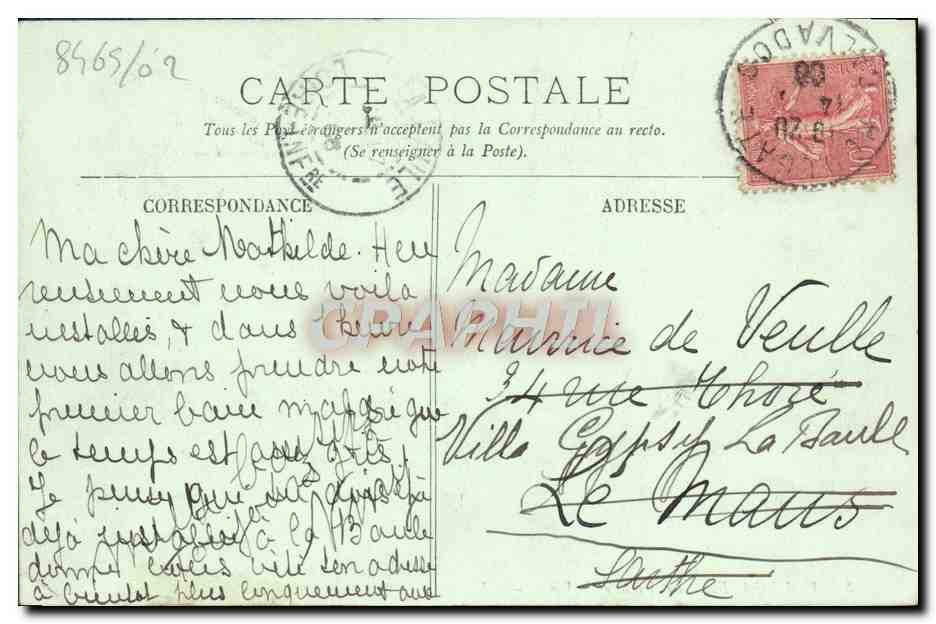 8465/02
CARTE POSTALE
Tous les Pays étrangers n'acceptent pas la Correspondance au recto.
(Se renseigner à la Poste).
CORRESPONDANCE
ADRESSE
CALVADOS
19 20
14
08
LOIRE INFRE
Ma chère Mathilde. Heu
reusement nous voilà
installées, & dans 1 heure
nous allons prendre notre
premier bain malgré que
le temps est assez gris,
Je pense que
déjà installée à la Baule
donne vite ton adresse
à bientôt plus longuement
CPAPHIL
Madame
Maurice de Veulle
34 rue Thoré
Villa Gypsy La Baule
Le Mans
Sarthe